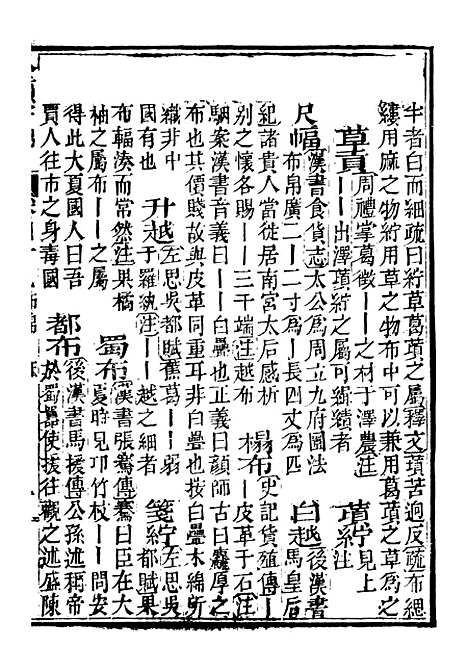 半者白而細疏曰紵草葛䔛之屬釋文䔛苦迥反疏布緦
縷用麻之物紵用草之物布中可以兼用葛䔛之草為之
草貢 周禮掌葛徵丨丨之材于澤農注
丨丨出澤䔛紵之屬可緝績者 䔛紵 見上
注
尺幅 漢書食貨志太公為周立九府圜法
布帛廣二丨二寸為丨長四丈為匹 白越 後漢書
馬皇后
紀諸貴人當徙居南宮太后感析
別之懷各賜丨丨三千端注越布 榻布 史記貨殖傳丨
木丨皮革千石注
駰案漢書音義曰丨丨白疊也正義曰顏師古曰麤厚之
布也其價賤故與皮革同重耳非白疊也按白疊木綿所
織非中
國有也 升越 左思吳都賦蕉葛丨丨弱
于羅紈注丨丨越之細者 箋紵 左思吳
都賦果
布輻湊而常然注果橘
柚之屬布丨丨之屬 蜀布 漢書張騫傳騫曰臣在大
夏時見邛竹杖丨丨問安
得此大夏國人曰吾
賈人往市之身毒國 都布 後漢書馬援傳公孫述稱帝
於蜀囂使援往觀之述盛陳